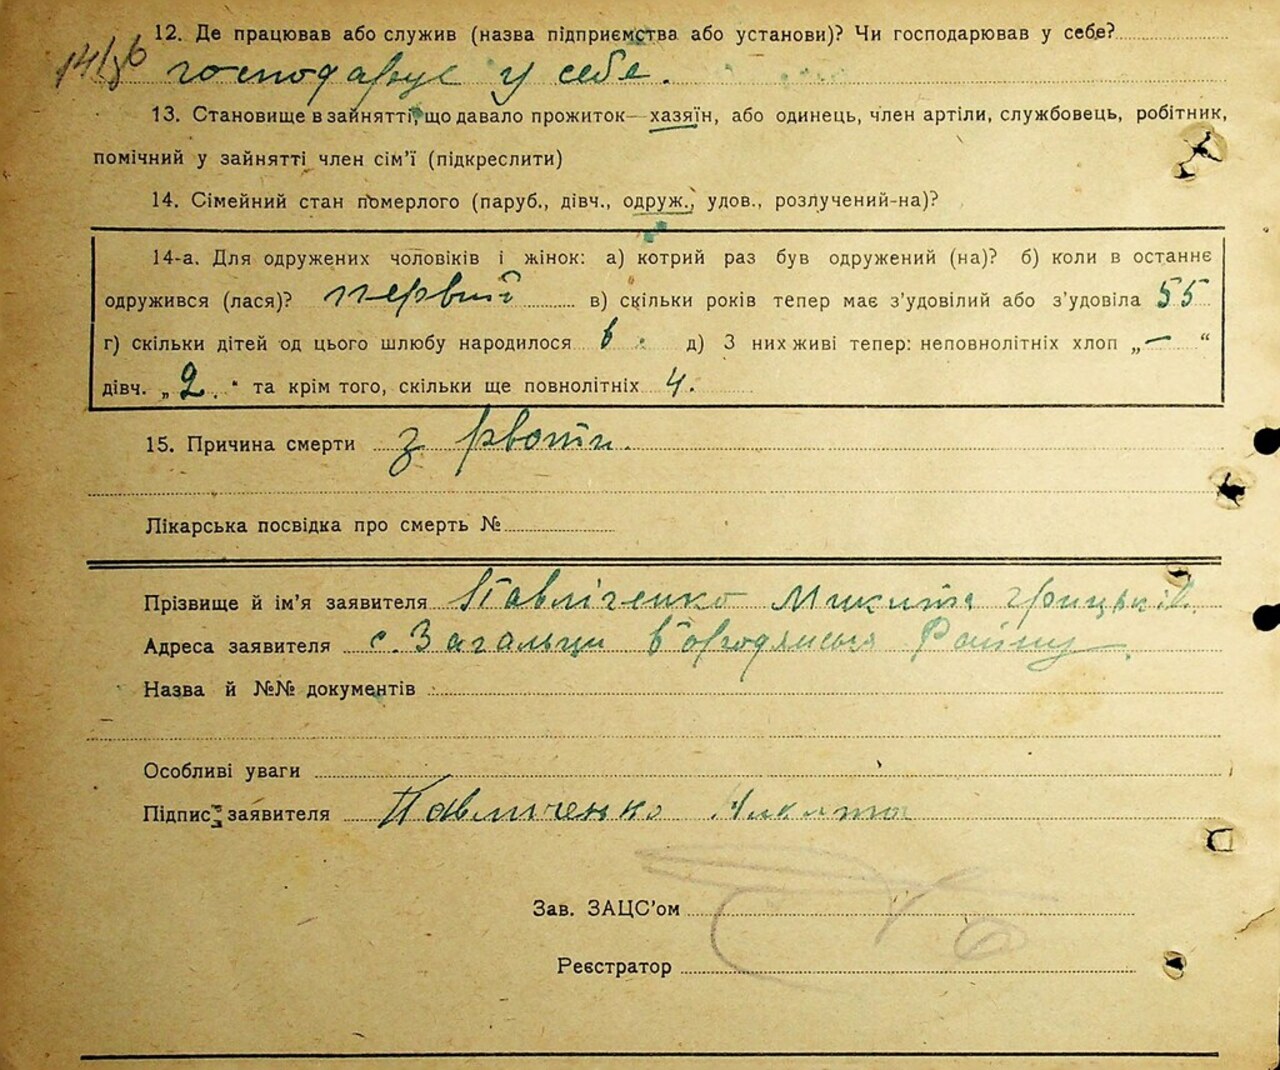 12. Де працював або служив (назва підприємства або установи)? Чи господарював у себе?
господарує у себе.
13. Становище в зайнятті, що давало прожиток—хазяїн, або одинець, член артілі, службовець, робітник,
помічний у зайнятті член сім’ї (підкреслити)
14. Сімейний стан померлого (паруб., дівч., одруж., удов., розлучений-на)?
14-а. Для одружених чоловіків і жінок: а) котрий раз був одружений (на)? б) коли в останнє
одружився (лася)? первий в) скільки років тепер має з’удовілий або з’удовіла 55
г) скільки дітей од цього шлюбу народилося 6 д) З них живі тепер: неповнолітніх хлоп „—“
дівч. „2." та крім того, скільки ще повнолітніх 4.
15. Причина смерти з рвоти.
Лікарська посвідка про смерть №
Прізвище й ім’я заявителя Павліченко Микита Грицьків.
Адреса заявителя с. Загальци Бородянська Району
Назва й №№ документів
Особливі уваги
Підпис заявителя Павличенко Микита
Зав. ЗАЦС’ом
Реєстратор